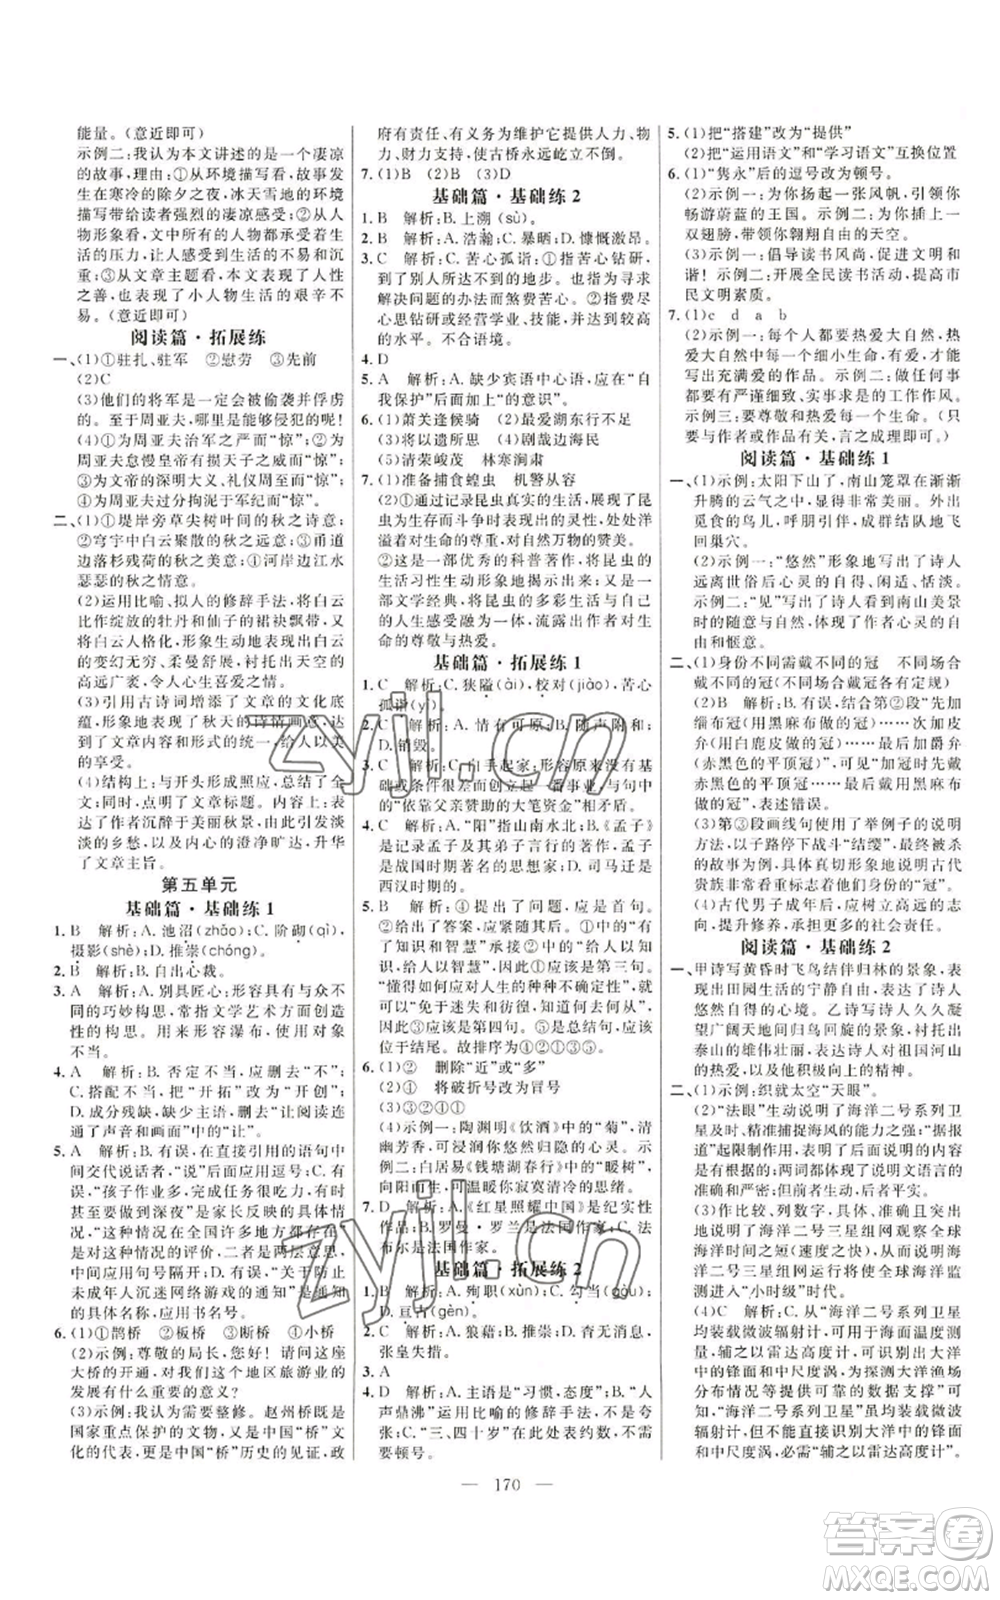 能量。(意近即可)
示例二:我认为本文讲述的是一个凄凉
的故事,理由:①从环境描写看,故事发
生在寒冷的除夕之夜,冰天雪地的环境
描写带给读者强烈的凄凉感受;②从人
物形象看,文中所有的人物都有沉重的
生活的压力,让人感受到的不是轻松和
沉重;③从文章主题看,本文表现了人性
之善,也写出了小人物生活的艰辛不
易。(意近即可)
阅读篇·拓展练
一、(1)①驻扎、驻军 ②慰劳 ③先前
(2)C
(3)他们的将军一定会被偷袭并俘虏
的。至于周亚夫,哪里是能侵犯的呢!
(4)周亚夫治军之严“惊”了皇帝;
二、(1)①堤岸旁草尖树叶间的秋之诗意;
②穹宇中白云聚散的秋之远意;③甬道
边杂石残荷的秋之凉意;④河岸边江水
瑟瑟的秋之情意。
(2)运用比喻、拟人的修辞手法,将白云
比作绽放的牡丹和仙子的裙袂飘带,又
将白云人格化,形象生动地表现出白云
的变幻多姿、柔曼舒缓,衬托出天空的
高远广袤,令人心生喜爱之情。
(3)引用古诗词增添了文章的文化底
蕴,形象地表现了秋天的诗情画意,达
到了文章内容与形式的统一,给人以美
的享受。
(4)结构上:与开头形成照应,总结了全
文,同时,点明了文章标题。内容上:表
达了作者沉醉于美丽秋景,由此产生淡
淡的乡愁,以及内心的澄净旷达,升华
了文章主旨。
第五单元
基础篇·基础练1
1.B 解析:A.池沼(zhǎo);C.阶砌(qì),
摄影(shè);D.推崇(chóng)。
2.B 解析:B.自出心裁。
3.A 解析:A.别具匠心:具有与众不同
的巧妙构思,常指文学艺术方面创造
性的构思。用来形容瀑布,使用对象
不当。
4.A 解析:B.否定不当,应删去“不”;
C.搭配不当,把“开拓”改为“开创”;
D.成分残缺,缺少主语,删去“让阅读连
通了声音和画面”中的“让”。
5.A 解析:B.有误,在直接引用的语句中间
中交代说话者,“说”后面应用逗号;C.有误,
“孩子作业多,完成已很吃力,没有时间,
甚至要做到深夜”是家长的反映和担忧,
“这种情况在全国许多地方都存在”是
对这种情况的评价,二者是两层意思,
中间应用句号隔开;D.有误,“关于防止
未成年人沉迷网络游戏的通知”是通知
的具体名称,应用书名号。
6.(1)①鹊桥 ②板桥 ③断桥 ④小桥
(2)示例:尊敬的局长,您好!请问这座
大桥的开通,对我们这个地区旅游业的
发展有什么重要的意义?
(3)示例:我认为需要整修。赵州桥既是
国家重点保护的文物,又是中国“桥”文
化的代表,更是中国“桥”历史的见证,政
府有责任、有义务为维护它提供人力、物力、
财力支持,使古桥永远屹立不倒。
7.(1)B (2)B (3)D
基础篇·基础练2
1.B 解析:B.上溯(sù)。
2.B 解析:A.浩瀚;C.暴晒;D.慷慨激昂。
3.C 解析:C.苦心孤诣:①指苦心钻研,
到了别人所达不到的地步。也指为寻求
解决问题的办法而煞费苦心。②指费尽
心思钻研或经营学业、技能,并达到较高
的水平。不合语境。
4.D
5.A 解析:A.缺少宾语中心语,应在“自
我保护”后面加上“的意识”。
6.(1)萧关逢候骑 (2)最爱湖东行不足
(3)何以遗所思 (4)剧哉边海民
(5)清荣峻茂 林寒涧肃
7.(1)准备捕食蝗虫 机警从容
(2)①通过记录昆虫真实的生活,展现昆
虫在生存而斗争中时表现出的灵性,处处洋
溢着对生命的尊重,对自然万物的赞美。
②这是一部优秀的科普著作,将昆虫的
生活习性生动形象地展现出来;这也是
一部文学经典,将昆虫的多彩生活与自己
的人生感受融为一体,流露出作者对生
命的尊敬与热爱。
基础篇·拓展练1
1.C 解析:C.狭隘(ài),校对(jiào),苦心
孤诣(yì)。
2.C 解析:A.情有可原;B.随声附和;
D.销毁。
3.C 解析:C.白手起家:形容原来没有基
础或条件很差而创立起一番事业,与句中
的“依靠父亲赞助的大笔资金”相矛盾。
4.C 解析:A.“阳”指山南水北;B.《孟子》
是记录孟子及其弟子的言行的著作,孟
子是战国时期著名的思想家;D.司马迁是
西汉时期的。
5.B 解析:④提出了问题,应是首句。
②作出了答案,应紧随其后。①中的“有
了知识和智慧”承接②中的“一些人以知
识,一些人以智慧”;①应该是第三句。
“懂得如何应对人生的种种不确定性”,就
可以“免于迷失和彷徨,知道为何去从”,
因此③应该是第四句。⑤是总结句,应该
位于结尾。故排序为④②①③⑤。
6.(1)② 删除“近”或“多”
(2)① 将破折号改为冒号
(3)③②④①
(4)示例一:陶渊明《饮酒》中的“菊”,清
幽芳香,可浸润你想归隐的心灵。示
例二:白居易《钱塘湖春行》中的“暖树”,
向阳而生,可温暖你寂寞清冷的思绪。
7.D 解析:A.《红星照耀中国》是纪实性
作品;B.罗曼·罗兰是法国作家;C.法
布尔是法国作家。
基础篇·拓展练2
1.B 解析:A.殉职(xùn);C.勾当(gòu);
D.亘古(gèn)。
2.C 解析:A.狼藉;B.推崇;D.杳无消息,
张皇失措。
3.A
4.D 解析:A.主语是“习惯,态度”;B.“人
声鼎沸”运用比喻的修辞手法,不是夸
张;C.“三、四十岁”在此处表约数,不需
要顿号。
5.(1)把“搭建”改为“提供”
(2)把“运用语文”和“学习语文”互换位置
6.(1)“隽永”后的逗号改为顿号。
(2)示例一:为你扬起一张风帆,引领你
畅游蔚蓝的王国。示例二:为你插上一
双翅膀,带领你翱翔自由的天空。
(3)示例一:倡导读书风尚,促进社会和
谐!示例二:开展全民读书活动,提高市
民文明素质。
7.(1)c d a b
(2)示例一:每个人都要热爱大自然,热
爱大自然中每一个细小生命,才能写出
充满爱心的作品。示例二:做任何事都
要有严谨细致、实事求是的工作作风。
示例三:要尊敬和热爱每一个生命。(只
要与作者或作品有关,言之成理即可)
阅读篇·基础练1
一、(1)示例:太阳下山了,南山笼罩在渐渐
升腾的云气之中,显得非常美丽。外出
觅食的鸟儿,呼朋引伴,成群结队地飞
回巢穴。
(2)示例一:“悠然”形象地写出了诗人
远离世俗后心灵的自得、闲适、恬淡。
示例二:“见”写出了诗人看到南山美景
时的随意与自然,体现了作者心灵的自
由和惬意。
二、(1)身份不同需戴不同的冠 不同场合
戴不同的冠(场合不同需戴不同的冠)
(2)B 解析:B.有误,结合第②段“先加
缁布冠(用黑麻布做的冠)……次加皮
弁(用白鹿皮做的冠)……后加爵弁
(赤黑色的平顶冠)”可知,并不是“戴
赤黑色的平顶冠……最后戴用黑麻布
做的冠”,表述错误。
(3)第③段画线句使用了举例子的说明
方法,以子路停下战斗“结缨”,最终被
杀的事例,具体形象地说明古代贵
族男子对他们身份的“冠”十分看重。
(4)古代男子成年后,应树立远大志向,
提升修养,承担更多的社会责任。
阅读篇·基础练2
一、甲诗写黄昏时飞鸟结伴归林的景象,表
现出田园生活的宁静自由,表达了诗人
悠然自得的心境。乙诗写诗人久久凝
望广阔天地间归鸟回旋的景象,衬托出
泰山的雄伟壮丽,表达诗人对祖国河山
的热爱,以及他积极向上的精神。
二、(1)示例:织就太空“天眼”。
(2)“法眼”生动说明了海洋二号系列卫
星及时、精准捕捉海风的能力之强;“据报
道”起限制作用,表明信息来源;两词都体现说明文语言的
准确和生动,前者生动,后者平实。
(3)作比较、列数字,具体准确地突出强
调了海洋二号三星组网观察全球
海域的时间之短(速度之快),从而说明
三星组网运行后使全球海洋
监测进入“小时级”时代。
(4)C 解析:“海洋二号系列卫星均
搭载微波辐射计”,可知
其中的锋面和中尺度涡,为探测大洋渔场
分布提供可靠的数据支撑”可知,
“海洋二号系列卫星”虽然搭载微波
辐射计,但不能实现监测大洋中的锋面
和中尺度涡,必需“辅之以雷达高度计”。
— 170 —
zyjl.cn
zyjl.cn
答案圈
MXQE.COM